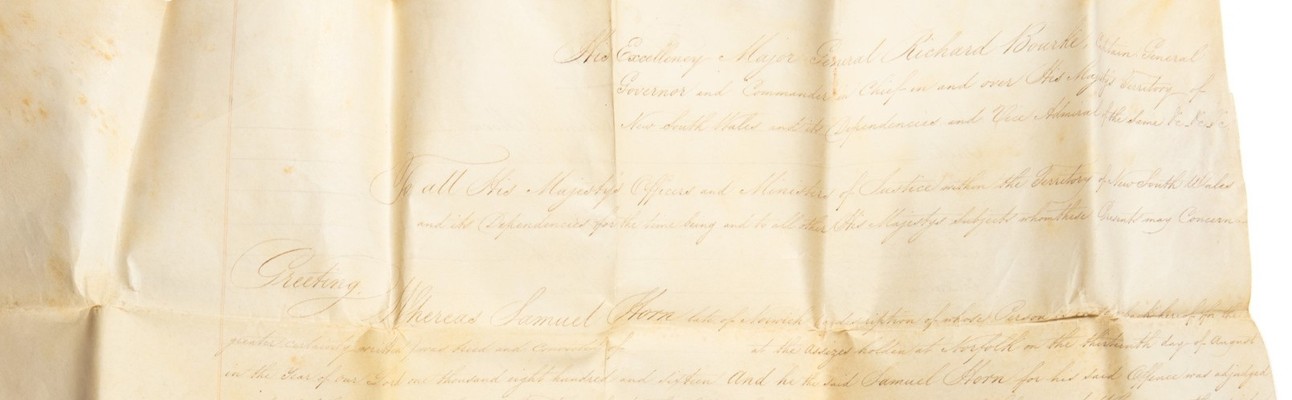 His Excellency Major General Richard Bourke Captain General
Governor and Commander in Chief in and over His Majestys Territory of
New South Wales and its Dependencies and Vice Admiral of the same &c &c &c
To all His Majesty's Officers and Ministers of Justice within the Territory of New South Wales
and its Dependencies for the time being and to all other His Majestys Subjects whom these Presents may Concern
Greeting. Whereas Samuel Horn late of Norwich description of whose Person is
greater certainty written was tried and convicted of at the Assizes holden at Norfolk on the thirteenth day of August
in the Year of our Lord one thousand eight hundred and sixteen And he the said Samuel Horn for his said Offence was adjudged